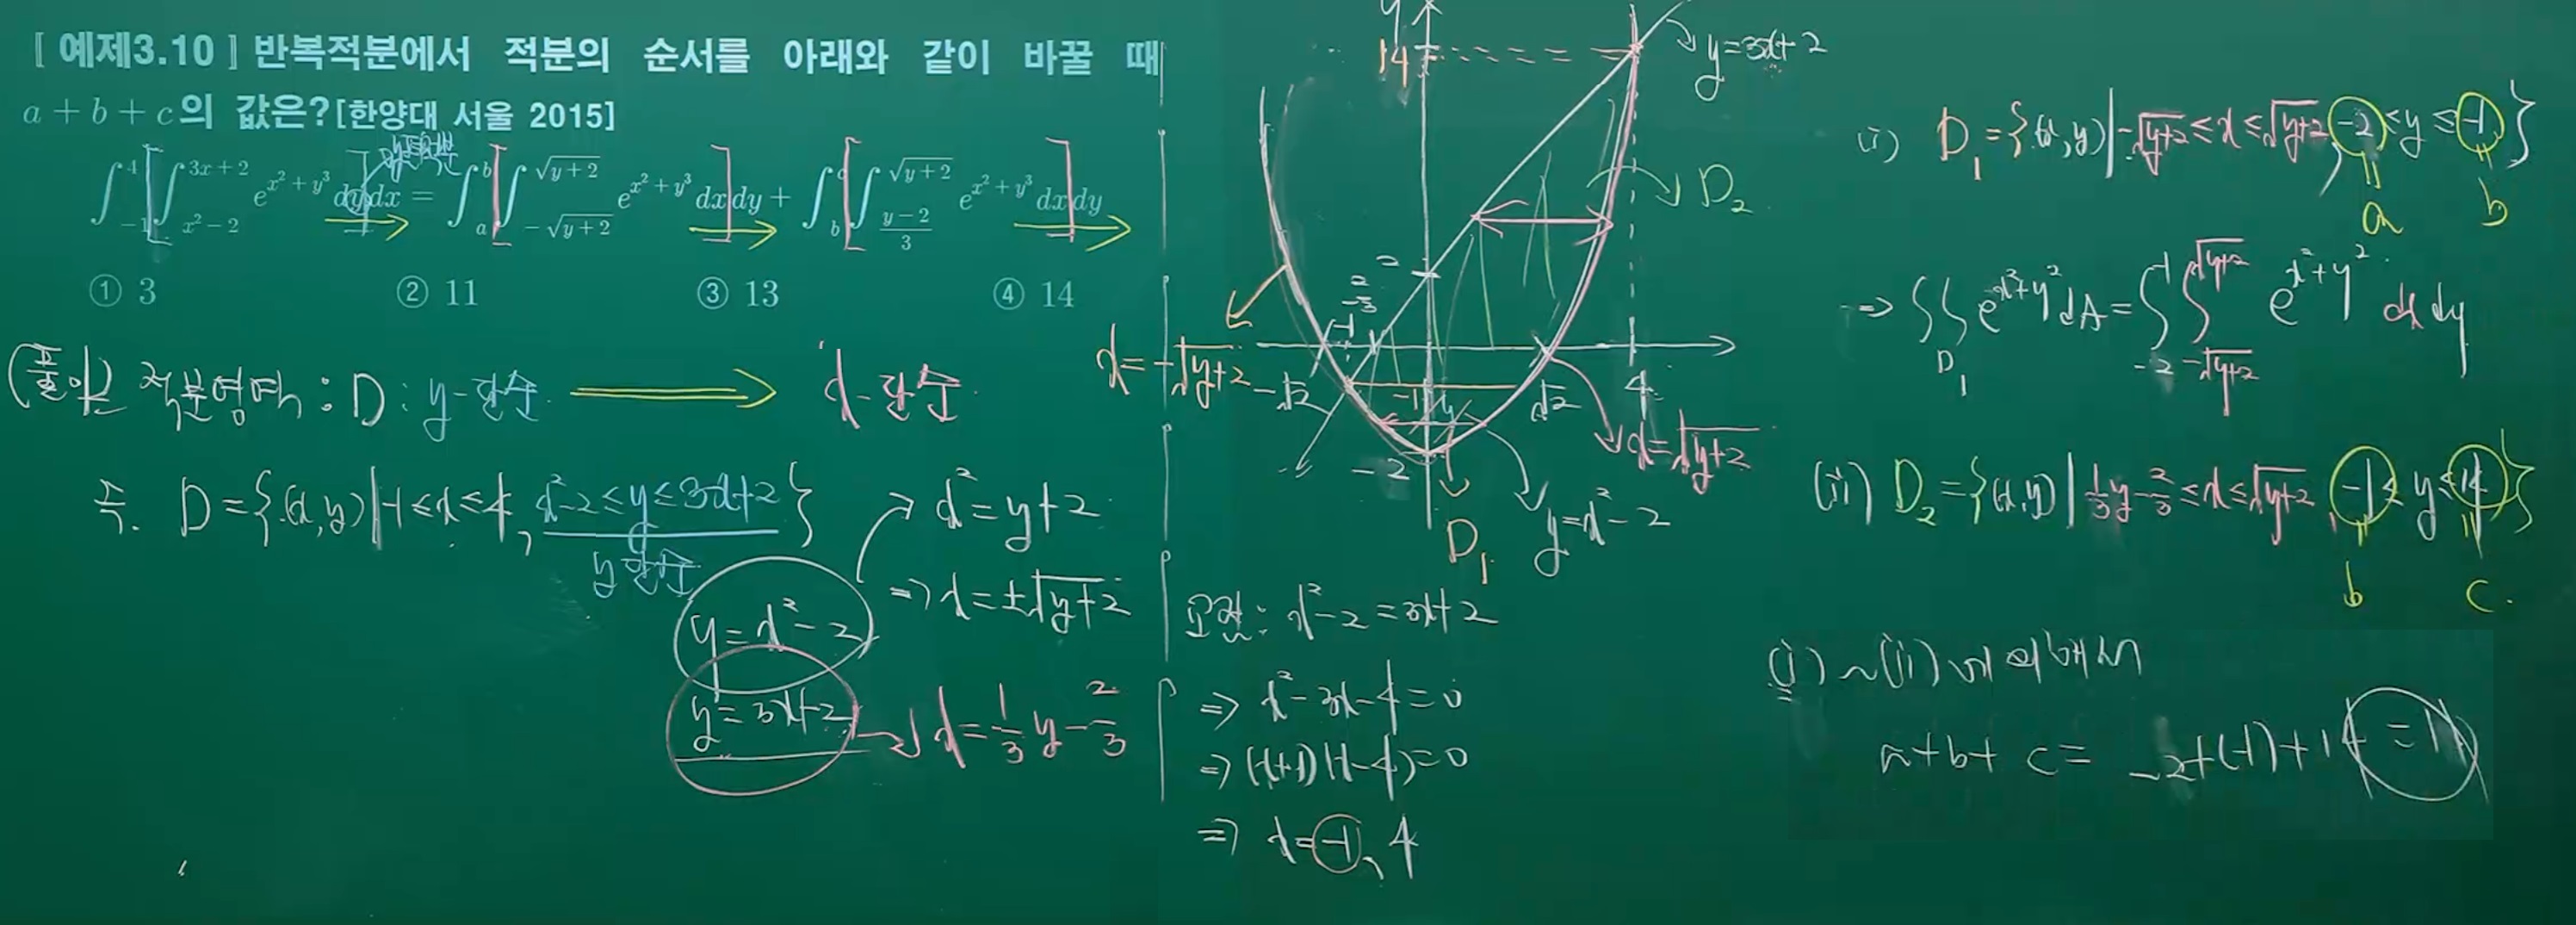 [ 예제3.10 ] 반복적분에서 적분의 순서를 아래와 같이 바꿀 때
a + b + c의 값은?[한양대 서울 2015]
∫_{-1}^{4} [∫_{x²-2}^{3x+2} e^{x²+y³} dy] dx = ∫_{a}^{b} [∫_{-√(y+2)}^{√(y+2)} e^{x²+y³} dx] dy + ∫_{b}^{c} [∫_{(y-2)/3}^{√(y+2)} e^{x²+y³} dx] dy
① 3 ② 11 ③ 13 ④ 14
(풀이) 적분영역 : D : y-단순 ⟹ x-단순
즉. D = {(x,y) | -1≤x≤4, x²-2≤y≤3x+2}
y단순
y=x²-2
x²=y+2
⇒ x=±√(y+2)
y=3x+2
x=1/3 y-2/3
y
14
y=3x+2
D₂
2
-2/3
-1
x=-√(y+2)
-√2
-1
√2
4
x=√(y+2)
-2
D₁
y=x²-2
교점: x²-2=3x+2
⇒ x²-3x-4=0
⇒ (x+1)(x-4)=0
⇒ x=-1, 4
(i) D₁={(x,y) | -√(y+2)≤x≤√(y+2), -2≤y≤-1}
a b
⇒ ∬_{D₁} e^{x²+y²} dA = ∫_{-2}^{-1} ∫_{-√(y+2)}^{√(y+2)} e^{x²+y²} dx dy
(ii) D₂={(x,y) | 1/3 y-2/3≤x≤√(y+2), -1≤y≤14}
b c.
(i)~(ii)에 의해서
a+b+c= -2+(-1)+14=11